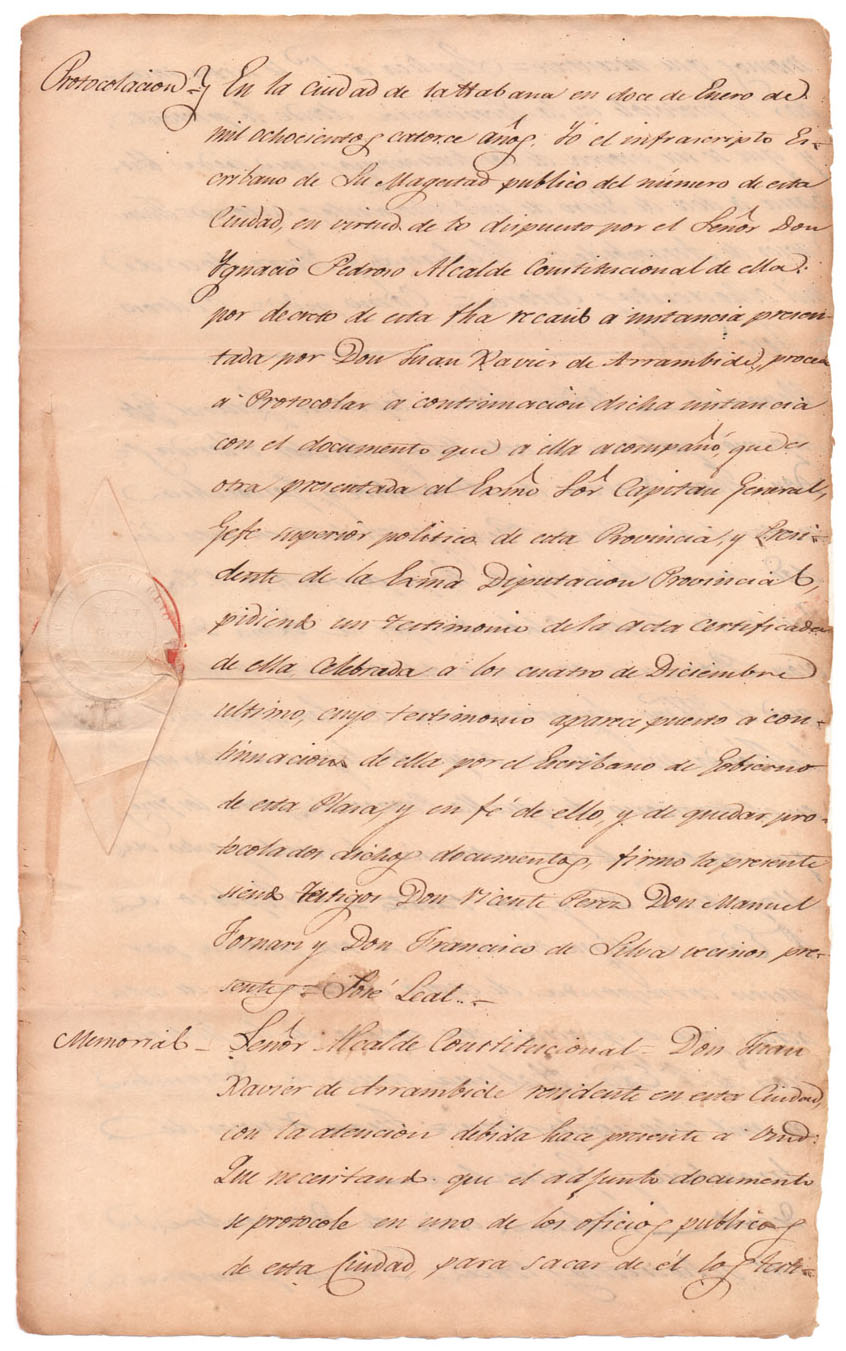 Protocolacion} En la ciudad de la Habana en doce de Enero de
mil ochocientos catorce añs. Yo el infrascripto Es-
cribano de Su Magestad publico del número de esta
Ciudad, en virtud de lo dispuesto por el Señr Don
Ygnacio Pedroso Alcalde Constitucional de ella:
por decreto de esta fha recaido a instancia presen-
tada por Don Juan Xavier de Arrambide, procedi
a Protocolar a continuacion dicha instancia
con el documento que a ella acompañó, que es
otra presentada al Exmõ Sõr Capitan General,
Gefe superior politico de esta Provincia, y Presi-
dente de la Exma Diputacion Provincial,
pidiendo un testimonio de la acta certificada
de ella celebrada a los cuatro de Diciembre
ultimo, cuyo testimonio aparece puesto a con-
tinuacion de ella por el Escribano de Gobierno
de esta Plaza, y en fé de ello, y de quedar pro-
tocolados dichos documentos, firmo la presente
siendo testigos Don Vicente Perez Don Manuel
Fornari y Don Francisco de Silva vecinos pre-
sentes = José Leal..=
Memorial - Señr Alcalde Constitucional - Don Juan
Xavier de Arrambide residente en esta Ciudad,
con la atención debida hace presente a Vmd:
Que necesitando que el adjunto documento
se protocole en uno de los oficios publicos
de esta Ciudad, para sacar de él los testi-